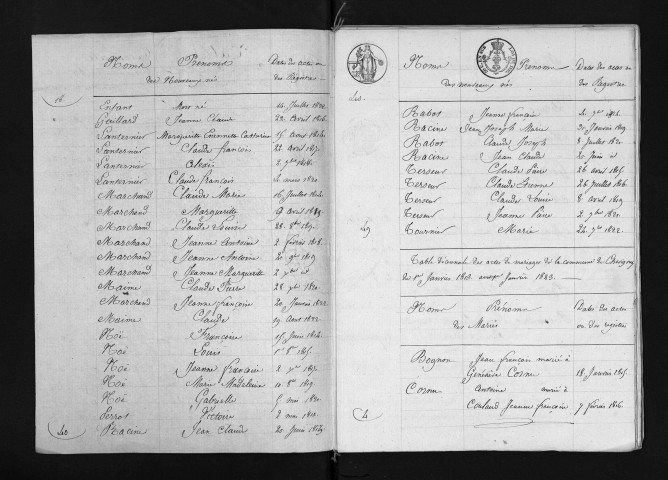 Noms Prenoms Dates des actes ou
des Nouveaux nés des Registres
16
Enfant Mort né 24 Juillet 1822.
Jeanne Claire 22 Avril 1816.
Lanternier Marguerite Catherine 15 avril 1814.
Lanternier Claude françois 22 avril 1817.
Lanternier Alexis 2 9bre 1818.
Lanternier Claude françois mars 1820
Marchand Claude Marie 16 Juillet
Marchand Marguerite 9 avril
Marchand Claude Louise 28 8bre 1815.
Marchand Jeanne Antoine 2 février 1818.
Marchand Jeanne Antoine 20 9bre 1819
Marchand Jeanne Marguerite 2 7bre id
Maime Claude Pierre 28 7bre 1820.
Marchand Jeanne françoise 20 Janvier 1822.
Maime Claude 19 Aout 1822.
Noë Françoise 15 Juin 1814.
Noë Louis 1er 1815.
Noë Jeanne françoise 2 7bre 1817.
Noë Marie Madeleine 10 8bre 1819.
Noë Gabrielle 5 1820.
Perrot Victoire 2 1818.
Racine Jean Claude 20 Juin 1819.
40
40.
Noms Prenoms Dates des actes ou
des nouveaux nés des Registres
Rabot Jeanne françoise
Racine Jean Joseph Marie 20 Janvier 1819.
Rabot Claude Joseph 8 Juillet 1820.
Racine Jean Claude 20 Juin id
Terseur Claude 26 avril 1815.
Terseur Claude Etienne 26 Juillet 1816.
Terseur Claude Louise 8 avril 1819.
Terseur Jeanne 2 7bre 1820.
49
Tournier Marie 24 7bre 1822.
Table décennale des actes de mariages de la commune de
du 1er Janvier 1813. au 1er Janvier 1823.
Noms Prénoms Dates des actes
des Mariés ou des registres
Bognon Jean françois marié à
Genevieve Cornu 18 Janvier 1815.
Cornu Antoine marié à
Coulaud Jeanne françoise 7 février 1816.
4